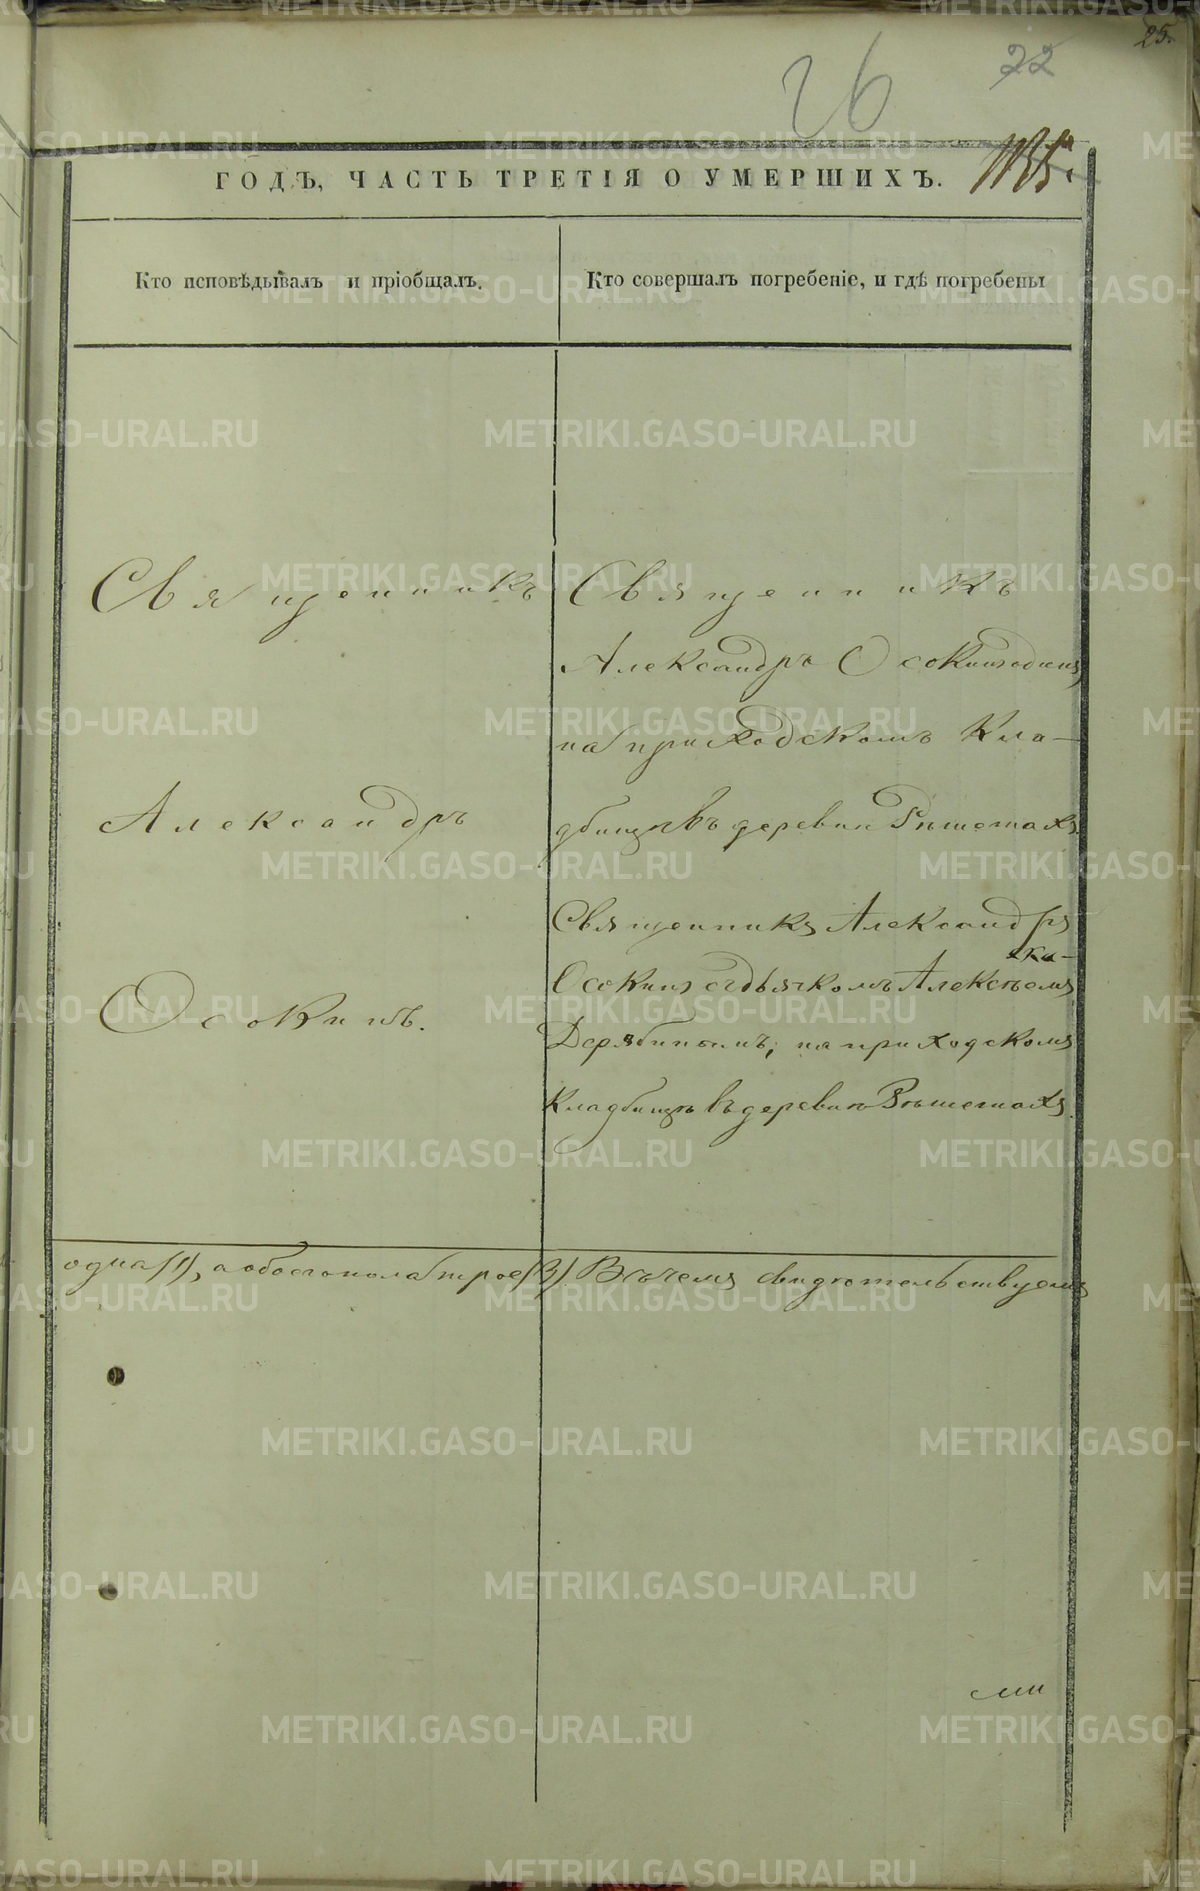 25.
22
26
1135.
ГОДЪ, ЧАСТЬ ТРЕТІЯ О УМЕРШИХЪ.
Кто исповѣдывалъ и пріобщалъ.
Кто совершалъ погребеніе, и гдѣ погребены
Священникъ
Александръ
Осокинъ.
Священникъ
Александръ Осокинъ одинъ,
на приходскомъ кла-
дбищѣ въ деревни Рѣшетахъ
Священникъ Александръ
Осокинъ съ дьячкомъ Алексѣемъ
Дерябинымъ, на приходскомъ
кладбищѣ въ деревнѣ Рѣшетахъ.
одна (1), а обоего пола трое (3). Въ чемъ свидѣтельствуемъ
METRIKI.GASO-URAL.RU